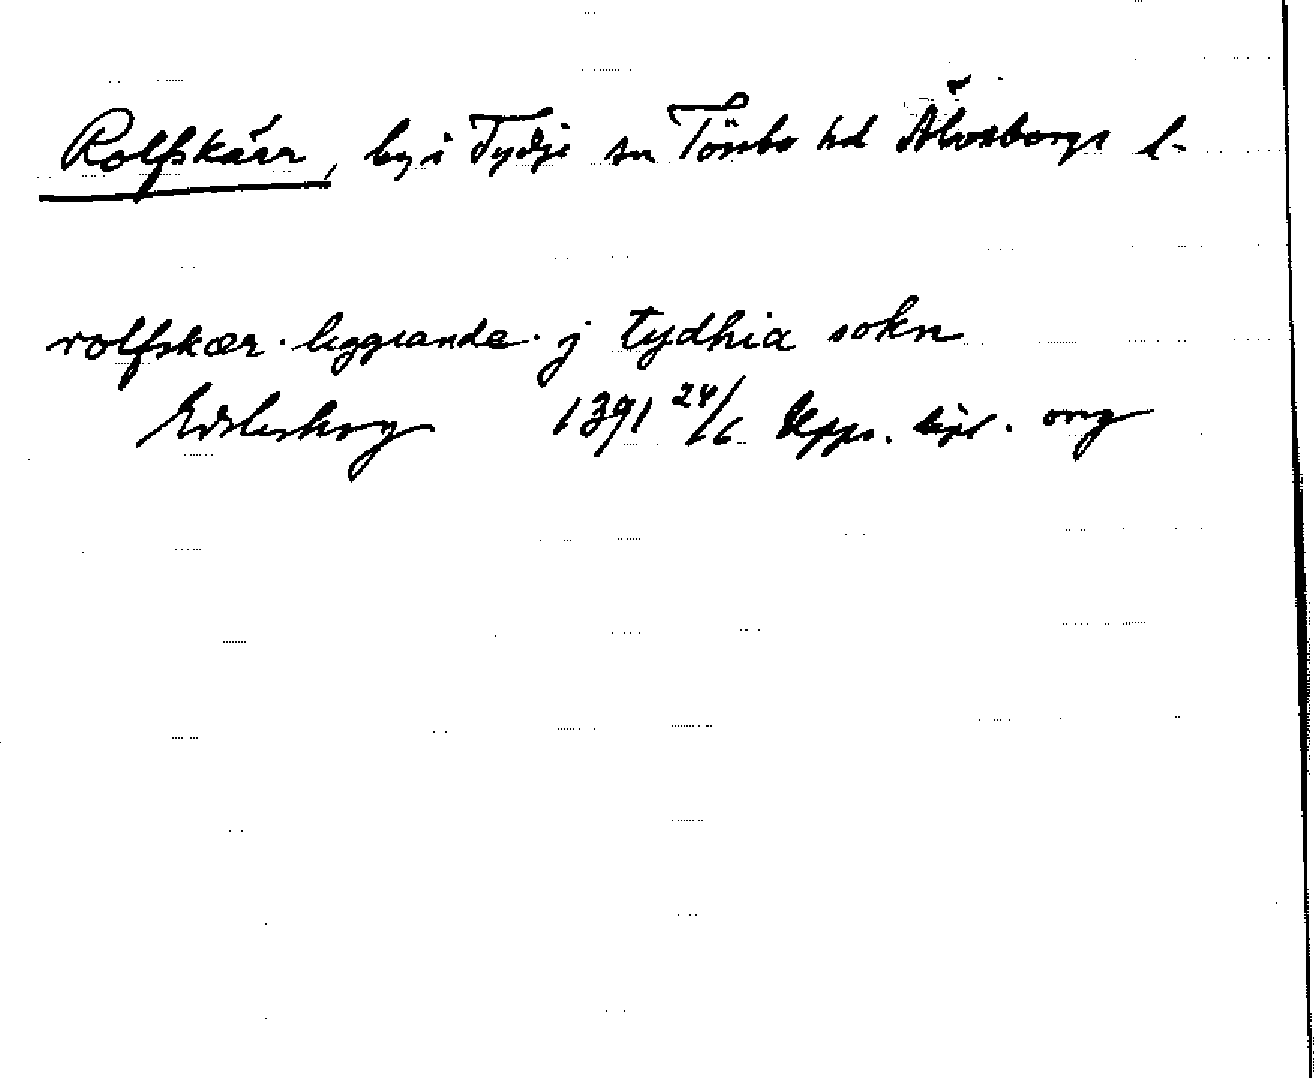 Rolfskärr, by i Tydje sn Tössbo hd Älvsborgs l.
rolfskær · liggiande · j tydhia sokn
Edsleskog 1391 24/6 Upps. dipl. org